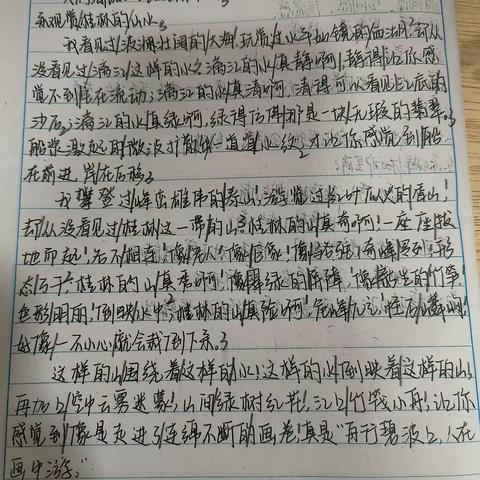 来观赏桂林的山水。
我看见过波澜壮阔的大海,玩赏过水平如镜的西湖,却从
没看见过漓江这样的水。漓江的水真静啊,静得让你感
觉不到它在流动;漓江的水真清啊,清得可以看见江底的
沙石;漓江的水真绿啊,绿得仿佛那是一块无瑕的翡翠。
船桨激起的微波扩散出一道道水纹,才让你感觉到船
在前进,岸在后移。
我攀登过峰峦雄伟的泰山,游览过红叶似火的香山,
却从没看见过桂林这一带的山。桂林的山真奇啊,一座座拔
地而起,各不相连,像老人,像巨象,像骆驼,奇峰罗列,形
态万千;桂林的山真秀啊,像翠绿的屏障,像新生的竹笋,
色彩明丽,倒映水中;桂林的山真险啊,危峰兀立,怪石嶙峋,
好像一不小心就会栽倒下来。
这样的山围绕着这样的水,这样的水倒映着这样的山,
再加上空中云雾迷蒙,山间绿树红花,江上竹筏小舟,让你
感觉到像是走进了连绵不断的画卷,真是"舟行碧波上,人在
画中游。"